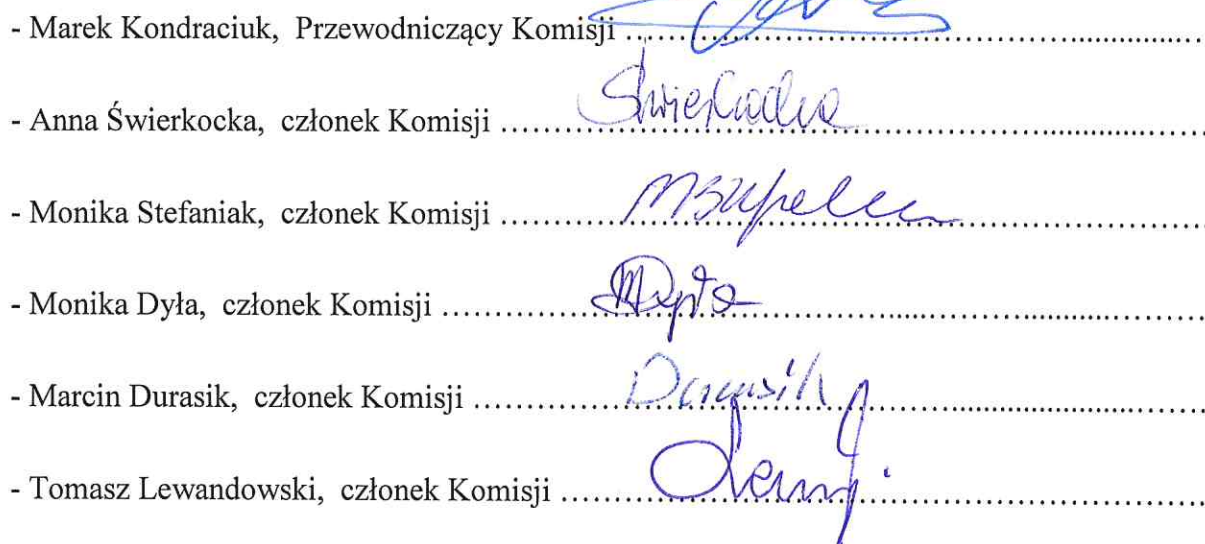 - Marek Kondraciuk, Przewodniczący Komisji
- Anna Świerkocka, członek Komisji ..... Świerkocka
- Monika Stefaniak, członek Komisji
- Monika Dyła, członek Komisji ..... MDyła
- Marcin Durasik, członek Komisji ..... Durasik
- Tomasz Lewandowski, członek Komisji